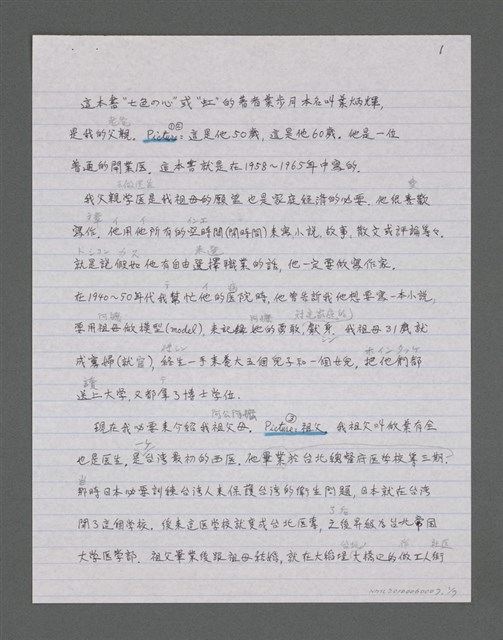 1
這本書"七色の心"或"虹"的著者葉步月本名叫葉炳輝,
是我的父親. Picture: 這是他50歲, 這是他60歲. 他是一位
普通的開業医. 這本書就是在1958~1965年中寫的.
我父親学医是我祖母的願望也是家庭経済的必要. 他很喜歡
寫作. 他用他所有的空時間(閒時間)來寫小說, 故事, 散文或評論等々.
就是說假如他有自由選擇職業的話, 他一定要做寫作家.
在1940~50年代我幫忙他的医院時, 他曾告訴我他想要寫一本小說,
要用祖母做模型(model), 來記錄她的勇敢, 献身. 我祖母31歲就
成寡婦(就官), 終生一手來養大五個兒子和一個女兒, 把他們都
送上大学, 又都拿了博士学位.
現在我必要來介紹我祖父母. Picture: 祖父. 我祖父叫做葉有全
也是医生, 是台湾最初的西医. 他畢業於台北總督府医学校第三期.
那時日本必要訓練台湾人來保護台湾的衛生問題, 日本就在台湾
開了這個学校. 後來這医学校就変成台北医専, 之後昇級為台北帝国
大学医学部. 祖父畢業後跟祖母結婚, 就在大稻埕大橋边的做工人街